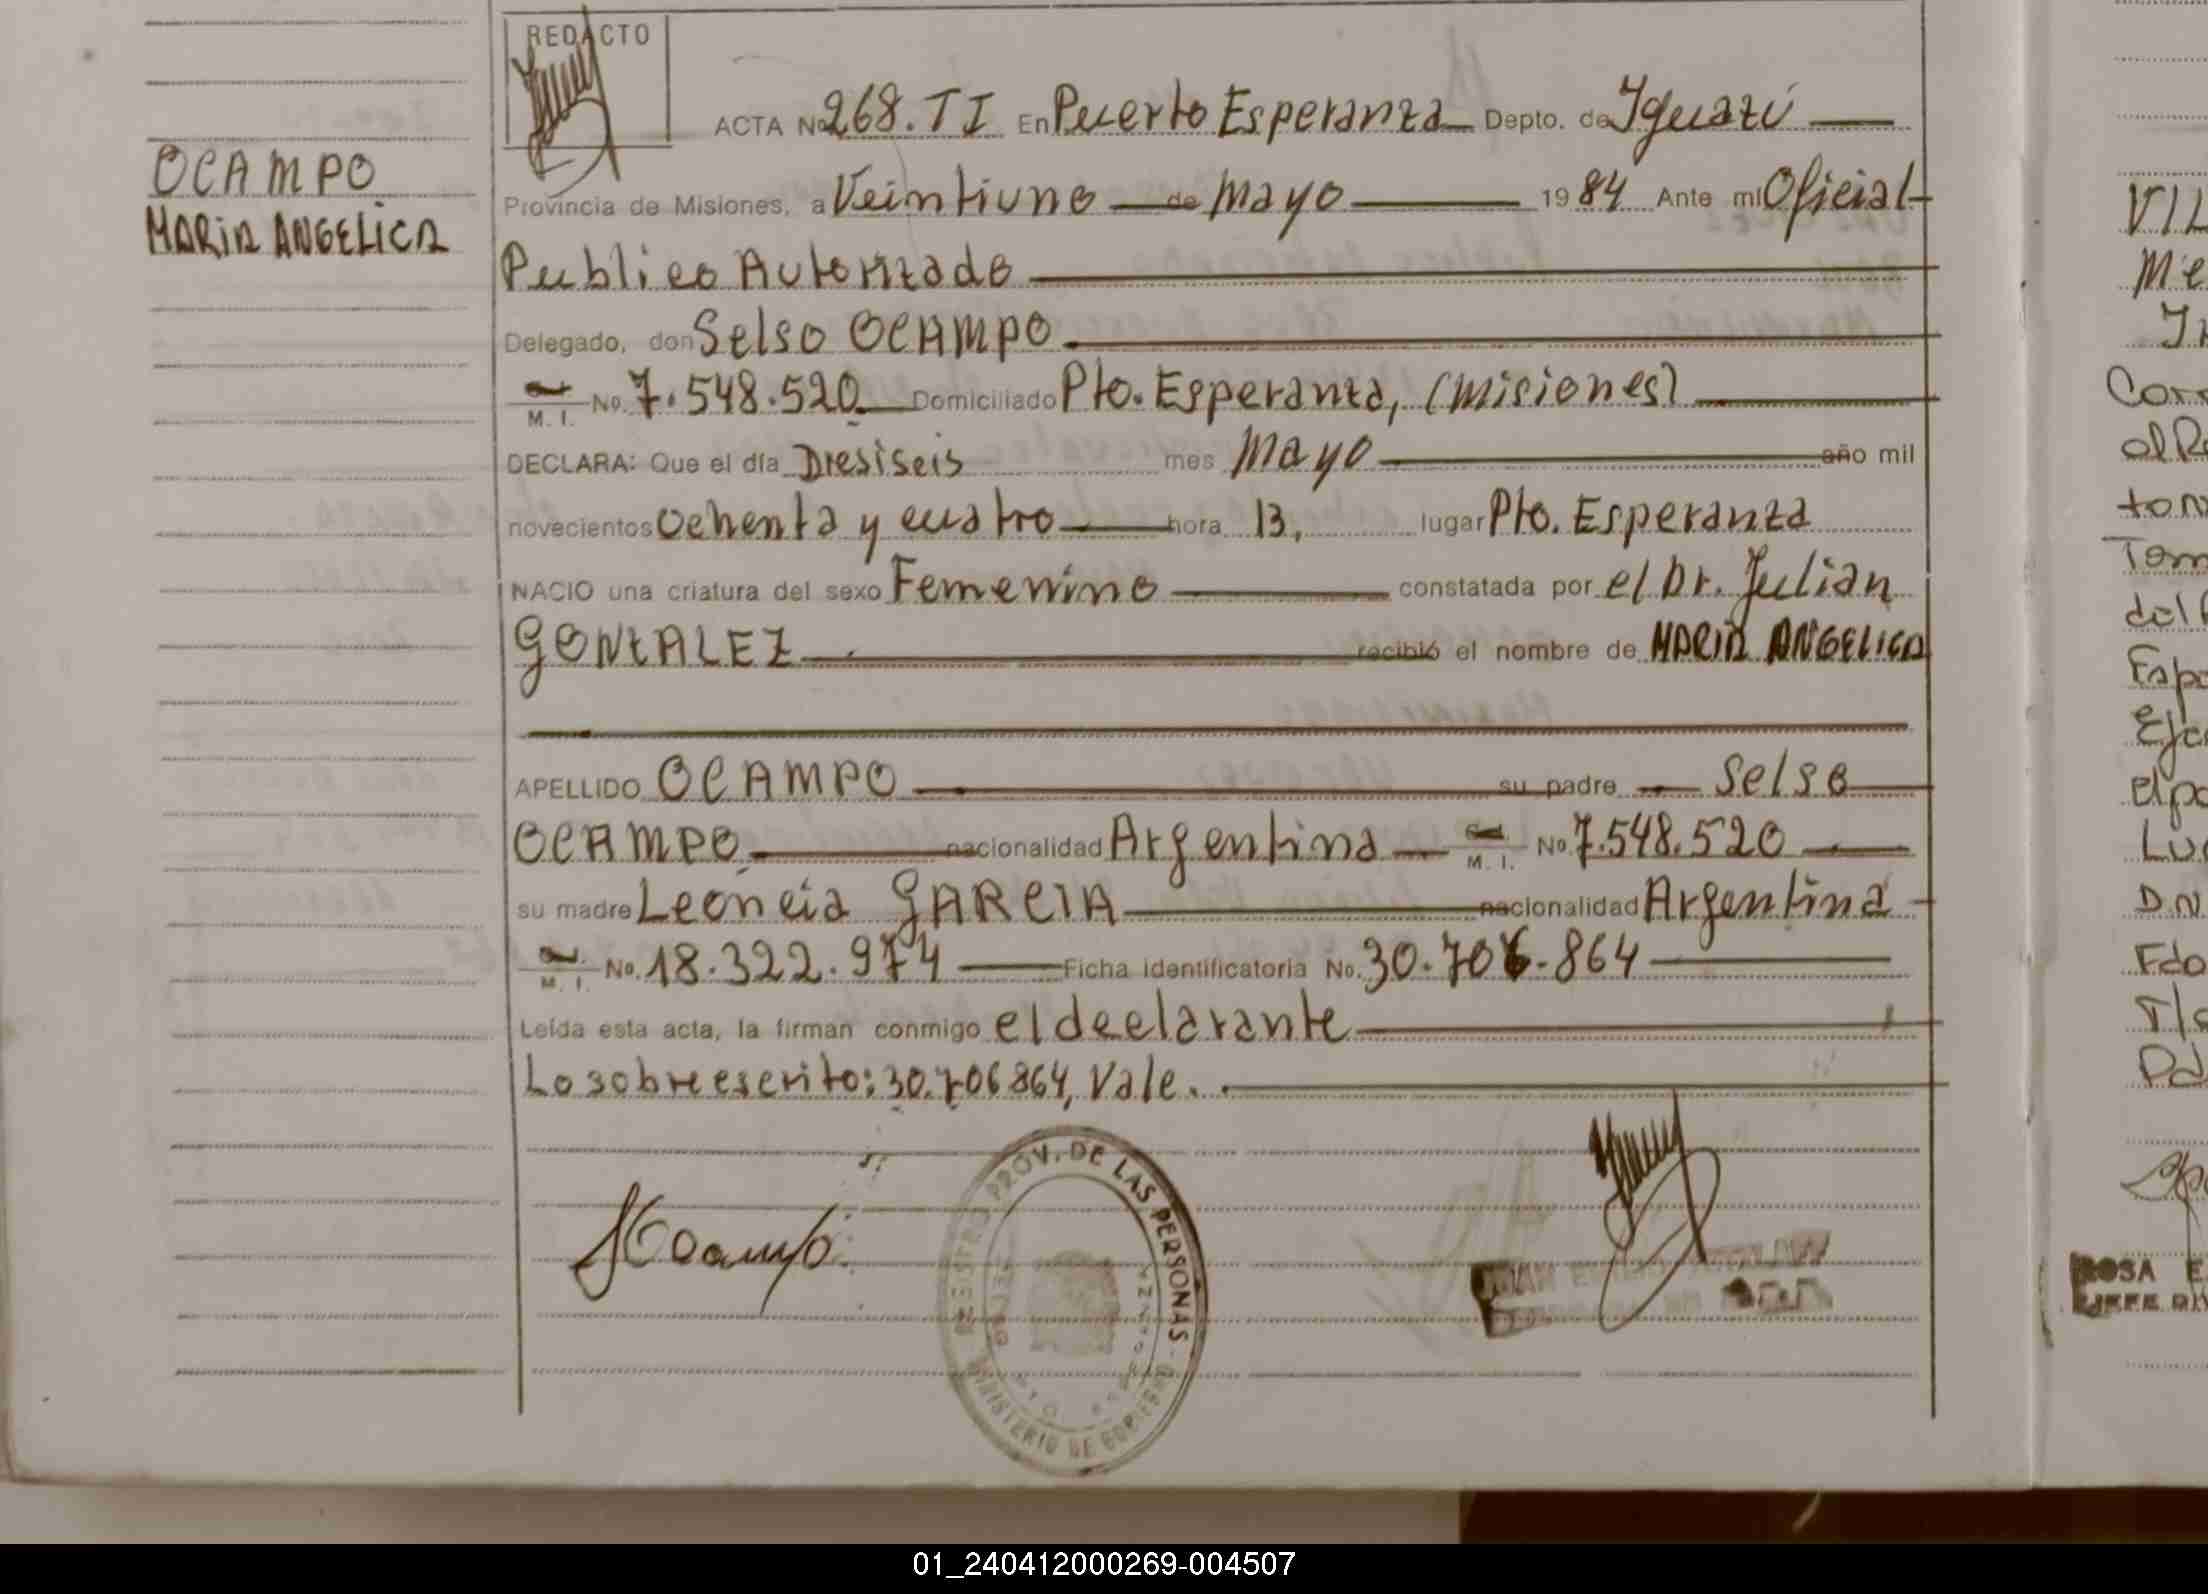 REDACTO
ACTA No 268. TI En Puerto Esperanza Depto. de Iguazú
OCAMPO
MARIA ANGELICA
Provincia de Misiones, a Veintiuno de Mayo 1984 Ante mi Oficial
Publico Autorizado
Delegado, don Selso OCAMPO
M. I. No. 7.548.520 Domiciliado Pto. Esperanza, (Misiones)
DECLARA: Que el día Diesiseis mes Mayo año mil
novecientos ochenta y cuatro hora 13, lugar Pto. Esperanza
NACIO una criatura del sexo Femenino constatada por el Dr. Julian
GONZALEZ recibió el nombre de MARIA ANGELICA
APELLIDO OCAMPO su padre Selso
OCAMPO nacionalidad Argentina M. I. No. 7.548.520
su madre Leóncia GARCIA nacionalidad Argentina
M. I. No. 18.322.974 Ficha identificatoria No. 30.706.864
Leída esta acta, la firman conmigo el declarante
Lo sobreescrito: 30.706864, Vale.
SOcampo
REGISTRO PROV. DE LAS PERSONAS
MINISTERIO DE GOBIERNO
VIL
Me
Corr
al Re
tom
Tom
del
Esp
Eje
el po
Luc
D.N
Fdo
T/s
Pd
ROSA E
JEFE DIV
01_240412000269-004507